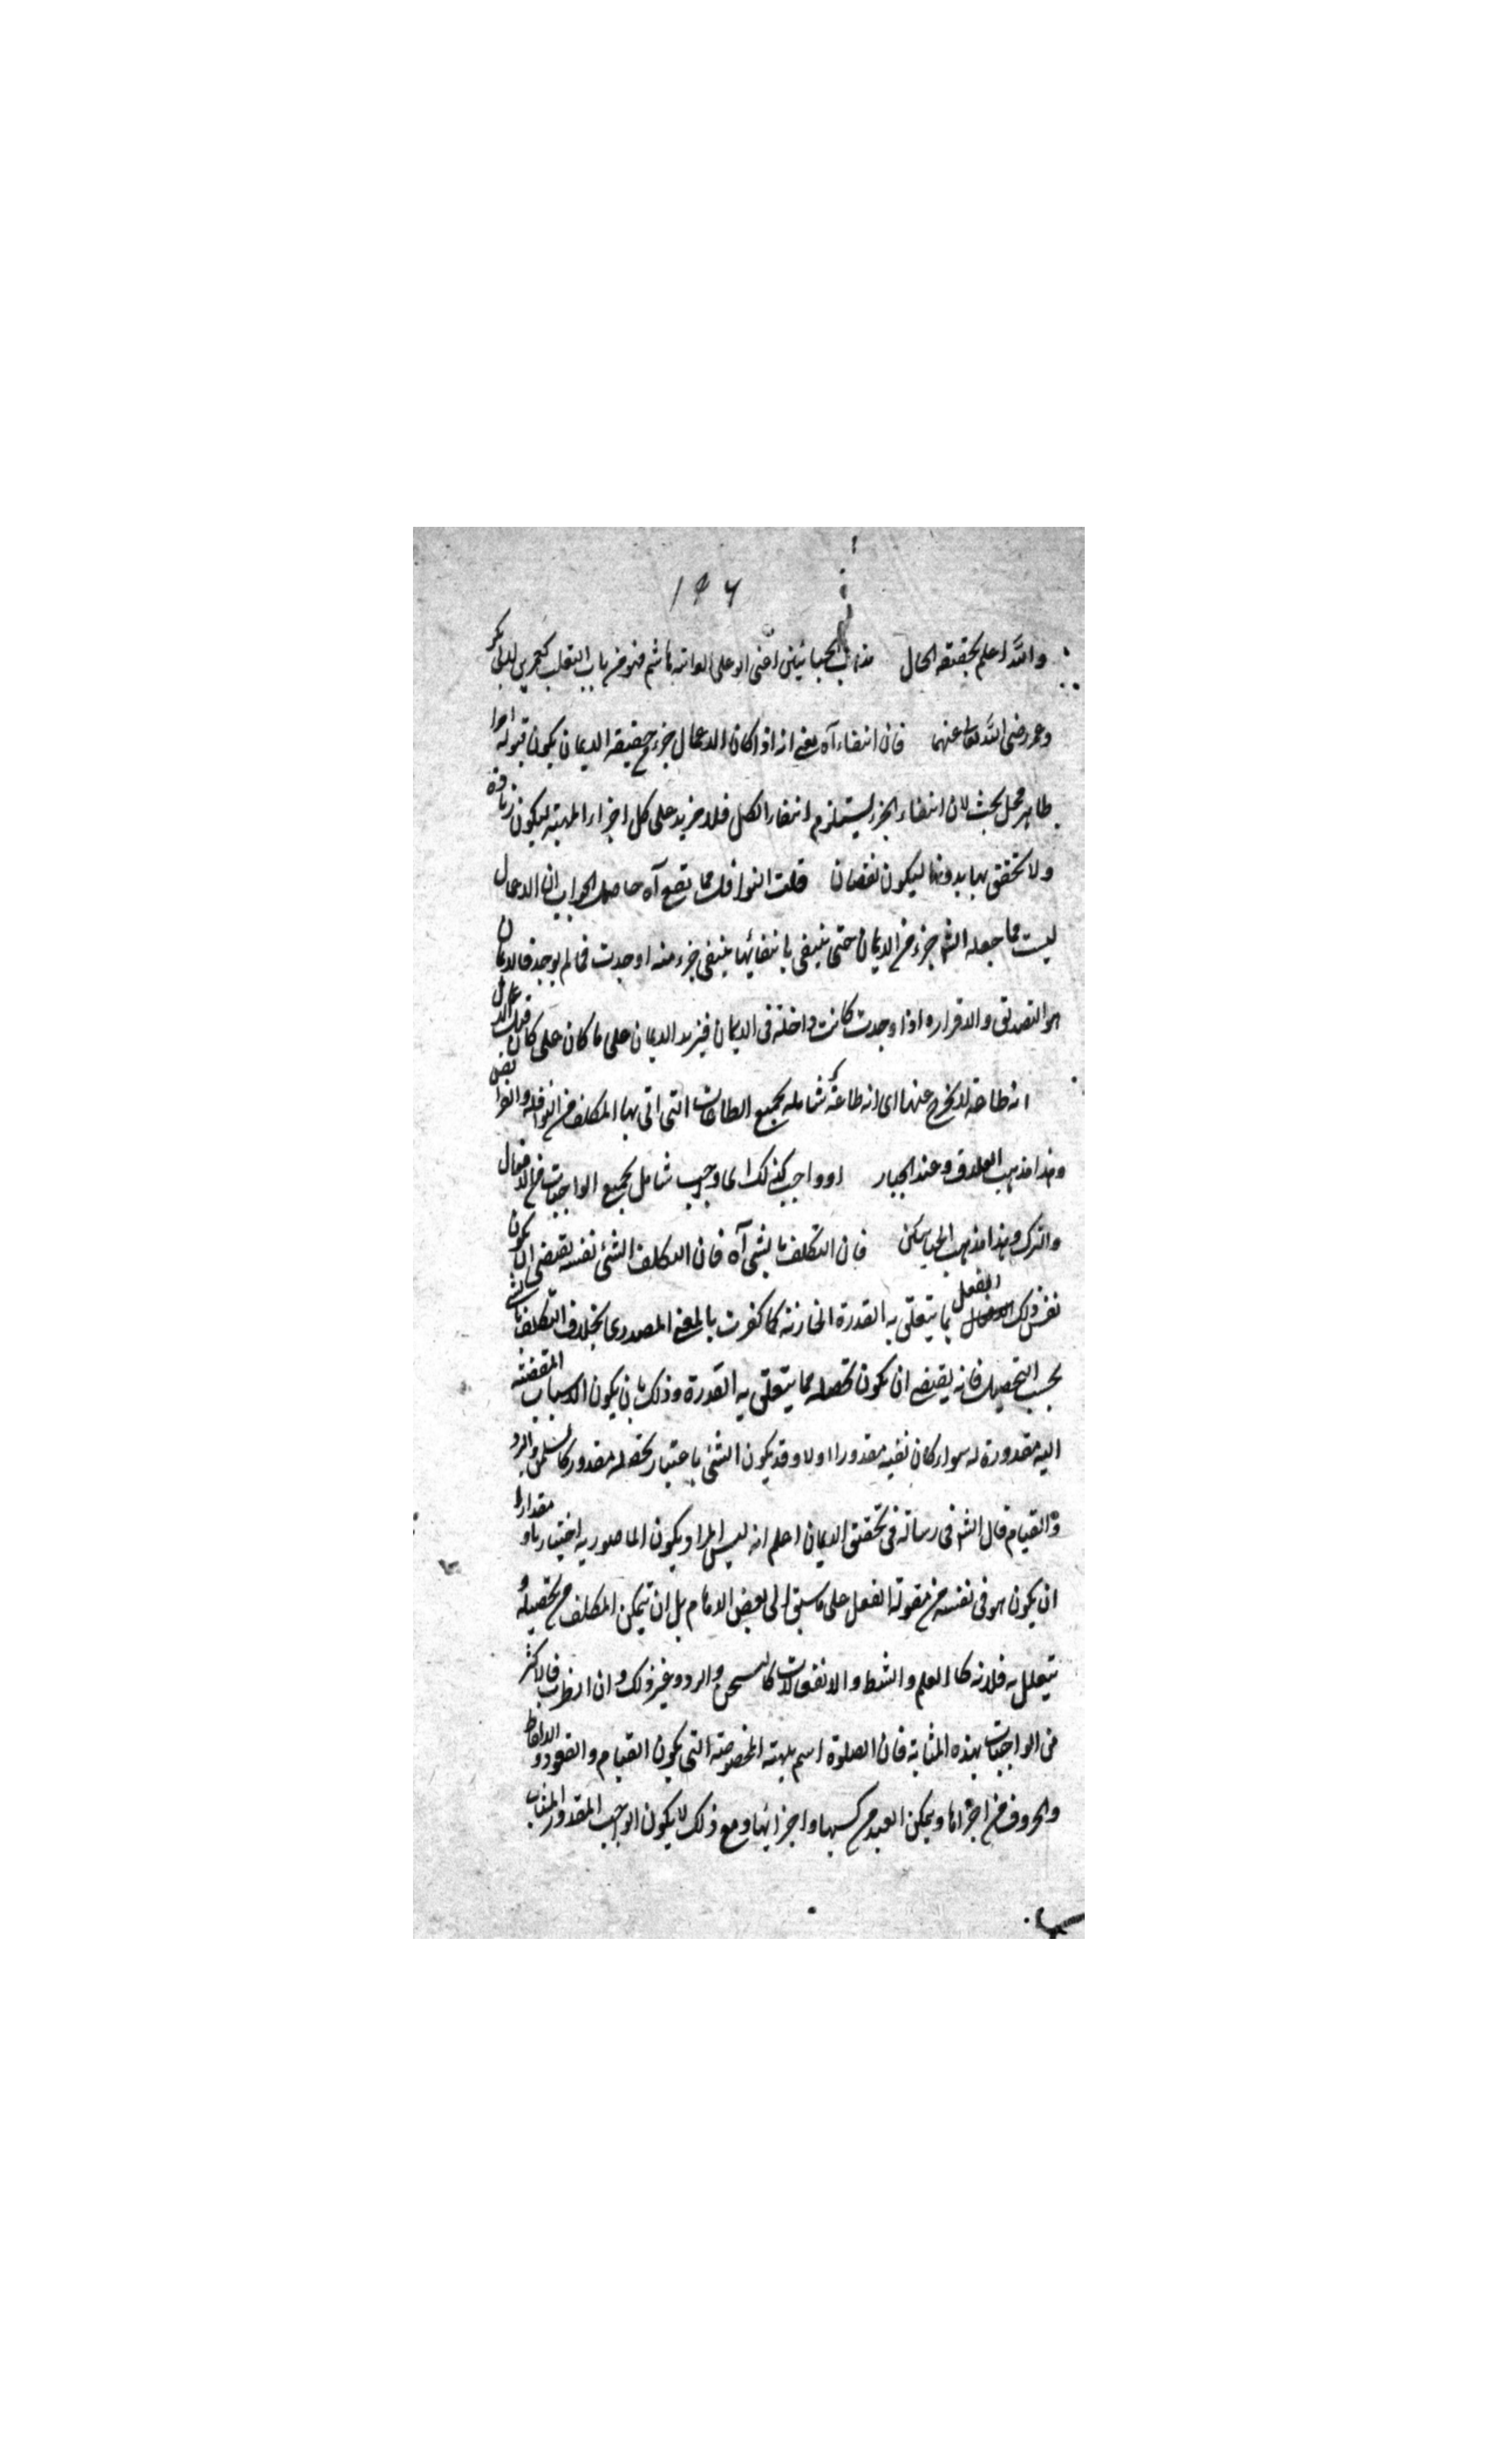 ١٩٦
والله اعلم بحقيقة الحال مذهب الجبائيين اعنى ابو على وابنه هاشم فهو من باب التغلب كعمرين لابى بكر
وعمر رضى الله تعالى عنهما فان انتفاء آه يعنى انه اذا كان الاعمال جزء من حقيقة الايمان يكون قبوله امرا
ظاهر محل بحث لان انتفاء الجزء يستلزم انتفاء الكل فلا مزيد على كل اجزاء المهية ليكون زيادة
ولا تحقق بها بدونها ليكون نقصان قلت النوافل مما تقع آه حاصل الجواب ان الاعمال
ليست مما جعله الش جزء من الايمان حتى ينتفى بانتفائها ينتفى جزء منه اوجدت فى لم يوجد فالايمان
هو التصديق والاقرار اذا وجدت كانت داخلة فى الايمان فيزيد الايمان على ما كان على كان قبل الاعمال
انه طاعة لا يخرج عنها اى انه طاعة شاملة بجميع الطاعات التى اتى بها المكلف من النوافل والفرائض
وهذا مذهب العلاف وعند الجبار او واجب كذلك اى واجب شامل بجميع الواجبات من الافعال
والترك وهذا مذهب الجبائين فان التكلف بالشى آه فان التكلف الشئ نفسه يقتضى ان يكون
نفس ذلك الفعل بما يتعلق به القدرة الحازنة كما كفرت بالمعنى المصدرى بخلاف التكلف بالشئ
بحسب التحصيل فانه يقتضى ان يكون تحصله مما يتعلق به القدرة وذلك بان يكون الاسباب المقضة
اليه مقدورة له سواء كان نفسه مقدورا اولا وقد يكون الشئ باعتبار تحصله مقدور كالتسخن والبرد
والقيام قال الش فى رسالة فى تحقق الايمان اعلم انه ليس المراد بكون المامور به اختياريا و مقدارا
ان يكون هو فى نفسه من مقولة الفعل على ما سبق الى بعض الاوهام بل ان تتمكن المكلف من تحصيله و
يتعلل به فلانه كا العلم والنظر والانفعالات كالتسخن والبرد وغير ذلك وان انظرت فالاكثر
من الواجبات بهذه المثابة فان الصلوة اسم لهيئة المخصوصة التى يكون القيام والقعود و الالفاظ
والحروف من اجزائها ويمكن العبد من كسبها واجزائها ومع ذلك لا يكون الواجب المقدور المثاب